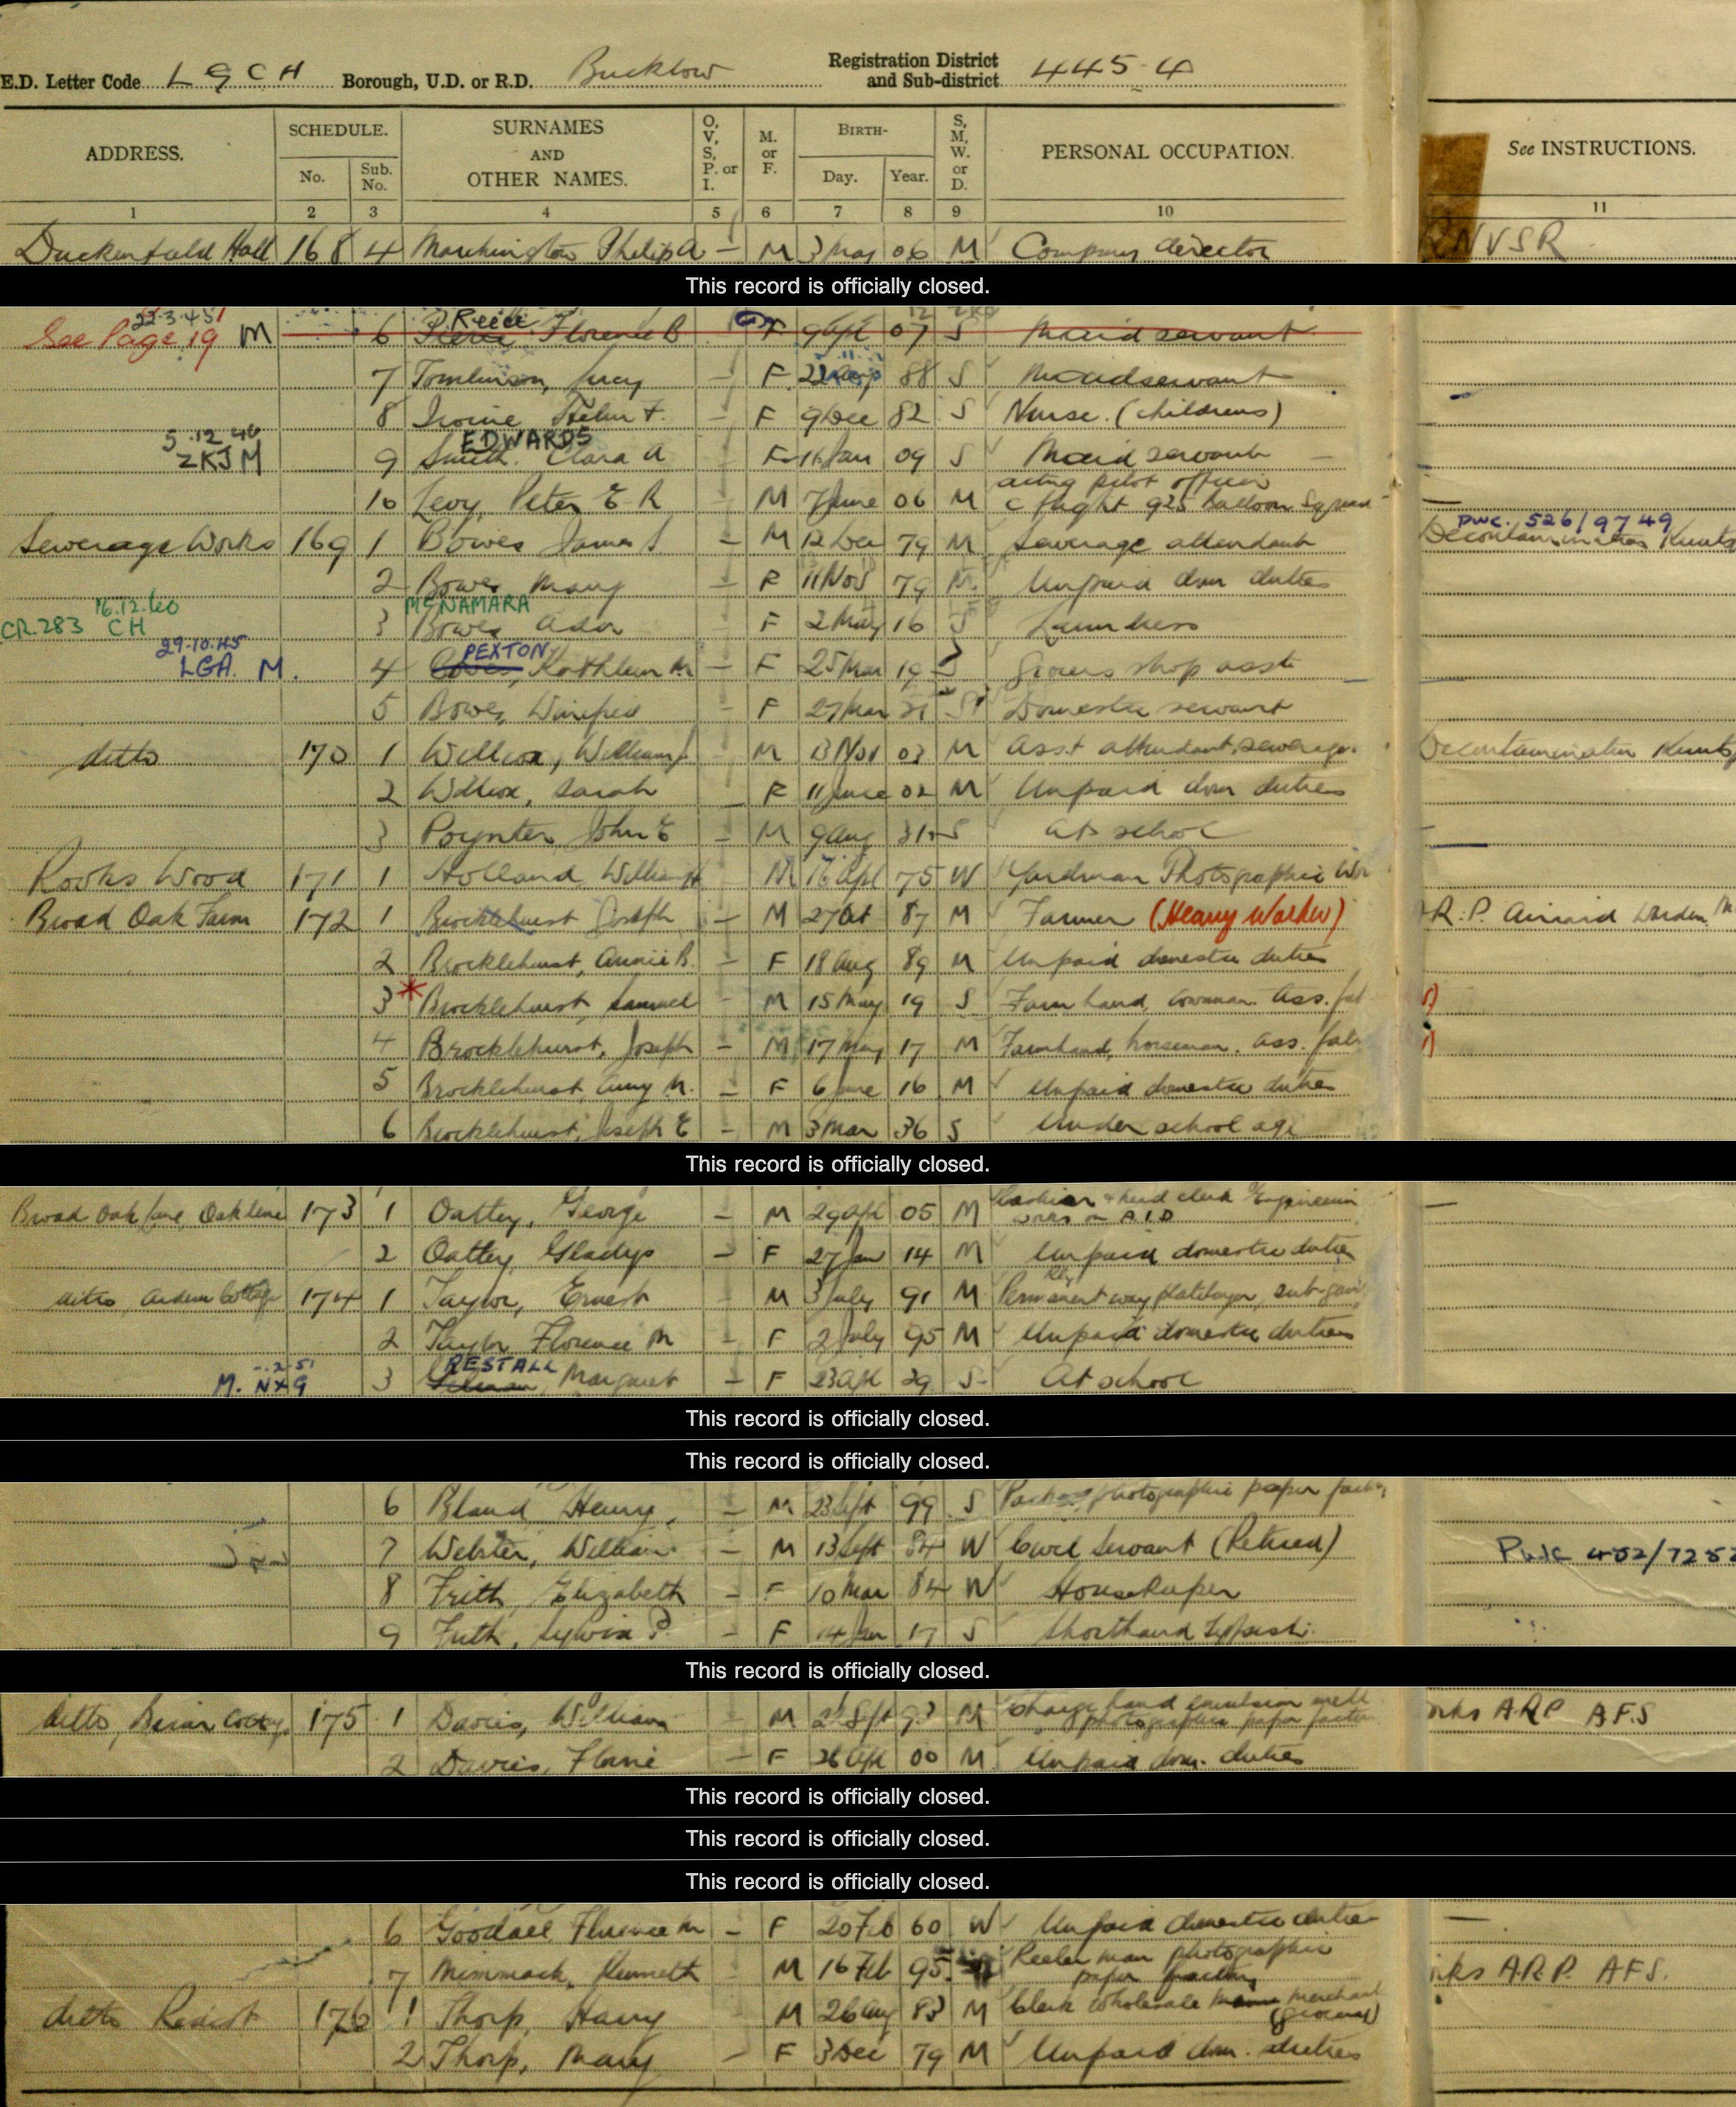 E.D. Letter Code L G C H Borough, U.D. or R.D. Bucklow Registration District and Sub-district 445-4
ADDRESS. SCHEDULE. No. Sub. No. SURNAMES AND OTHER NAMES. O, V, S, P. or I. M. or F. BIRTH- Day. Year. S, M, W. or D. PERSONAL OCCUPATION. See INSTRUCTIONS.
1 2 3 4 5 6 7 8 9 10 11
Duckenfield Hall 168 4 Marchington Philip A - M 3 May 06 M Company director RNVSR
This record is officially closed.
22.3.45
See Page 19 M 6 Reece Florence B F 9 Apl 07 S Maid servant
7 Tomlinson, Lucy - F 88 S Maidservant
8 Irvine Helen F. - F 9 Dec 82 S Nurse (childrens)
5.12.40 EDWARDS
ZKJ M 9 Smith. Clara A F 11 Jan 09 S Maid servant -
acting pilot officer
10 Levy, Peter E R M 7 June 06 M C flight 925 Balloon Squad
PWC. 526/9749
Sewerage Works 169 1 Bowes James S - M 12 Dec 79 M Sewerage attendant Decontamination
2 Bowes Mary - F 11 Nov 79 M Unpaid dom duties
16.12.60 McNAMARA
CR.283 CH 3 Bowes Ada F 2 May 16 S Laundress
29.10.45 PEXTON
LGA. M. 4 Bowes, Kathleen M. - F 25 Mar 19 S Grocers shop asst
5 Bowes, Winifred - F 27 Mar 21 S Domestic servant
ditto 170 1 Willcox, William J M 13 Nov 03 M Asst attendant sewerage. Decontamination
2 Willcox, Sarah F 11 June 02 M Unpaid dom duties
3 Poynter, John E - M 9 Aug 31 S At school
Rooks Wood 171 1 Holland William H M 16 Apl 75 W Yardman Photographic Wor
Broad Oak Farm 172 1 Brocklehurst Joseph - M 27 Oct 87 M Farmer (Heavy Worker) A.R.P. Airraid Warden
2 Brocklehurst, Annie B. - F 18 Aug 89 M Unpaid domestic duties
3 * Brocklehurst, Samuel - M 15 May 19 S Farm hand, cowman. Ass. fat
4 Brocklehurst, Joseph - M 17 May 17 M Farmhand, horseman. Ass. fat
5 Brocklehurst, Amy M. - F 6 June 16 M Unpaid domestic duties
6 Brocklehurst, Joseph E - M 3 Mar 36 S Under school age
This record is officially closed.
Broad Oak Lane, Oakline 173 1 Oatley, George - M 29 Apl 05 M Cashier + head clerk Engineerin works on A I D
2 Oatley Gladys - F 27 Jan 14 M Unpaid domestic duties
ditto, Arden Cottage 174 1 Taylor, Ernest M 3 July 91 M Rly Permanent way platelayer, sub-gan
2 Taylor Florence M - F 2 July 95 M Unpaid domestic duties
2.51 RESTALL
M. NXG 3 Margaret - F 23 Apl 29 S At school
This record is officially closed.
This record is officially closed.
6 Bland Henry, - M 23 Sept 99 S Packer, photographic paper factory
7 Webster, William - M 13 Sept 84 W Civil Servant (Retired) PWC 402/725
8 Frith, Elizabeth - F 10 Mar 84 W Housekeeper
9 Frith, Sylvia P. - F 14 Jan 17 S Shorthand Typist
This record is officially closed.
ditto, Briar Cottage 175 1 Davies, William M Sept 93 M Charge hand emulsion melt photographic paper factory Works ARP AFS
2 Davies, Florrie - F 26 Apl 00 M Unpaid dom. duties
This record is officially closed.
This record is officially closed.
This record is officially closed.
6 Goodall Florence M - F 20 Feb 60 W Unpaid domestic duties
7 Mimmack, Kenneth M 16 Feb 95 Reeler man photographic paper factory Works ARP. AFS.
ditto 176 1 Thorp, Harry M 26 Aug 83 M Clerk wholesale merchant (grocery)
2 Thorp, Mary - F 3 Dec 79 M Unpaid dom. duties